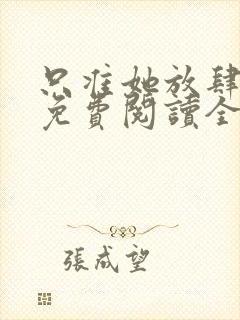 只准她放肆
免費閱讀全
張成望